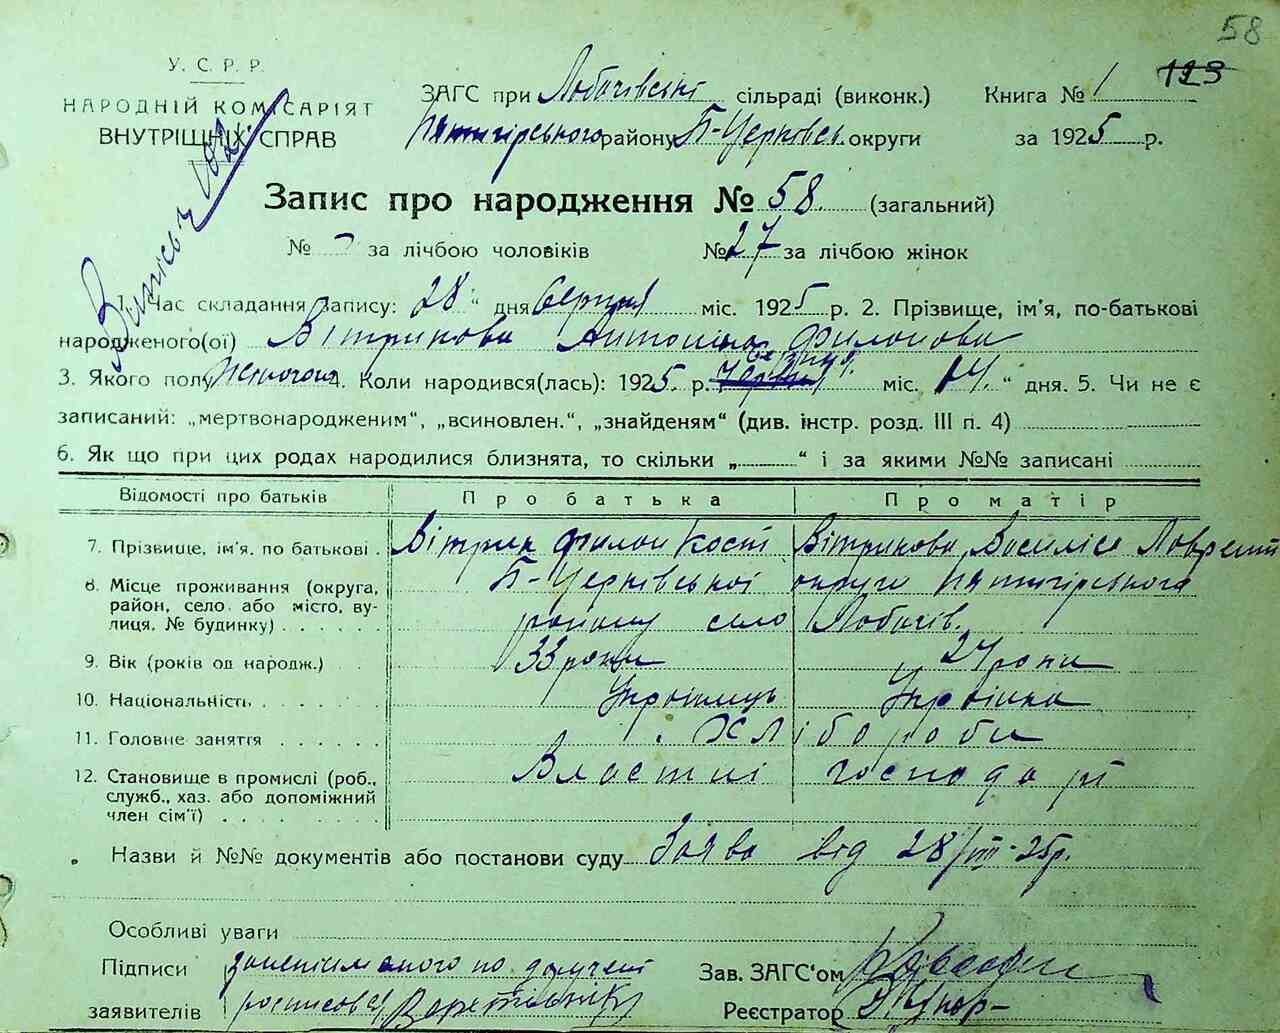 58
У. С. Р. Р.
НАРОДНІЙ КОМІСАРІЯТ
ВНУТРІШНІХ СПРАВ
ЗАГС при Лобачівські сільраді (виконк.) Книга № 1 123
Пятигірського району Б-Церковсь. округи за 1925 р.
Запис про народження № 58. (загальний)
№ за лічбою чоловіків № 27 за лічбою жінок
1. Час складання запису: 28 " дня Серпня міс. 1925 р. 2. Прізвище, ім'я, по-батькові
народженого(ої) Вітрикова Антоніна Филонова
3. Якого полу Жіночого 4. Коли народився(лась): 1925. р. міс. 14. " дня. 5. Чи не є
записаний: „мертвонародженим“, „всиновлен.“, „знайденям“ (див. інстр. розд. III п. 4)
6. Як що при цих родах народилися близнята, то скільки „ “ і за якими №№ записані
Відомості про батьків Про батька Про матір
7. Прізвище, ім'я, по батькові . Вітрик Филон Кості Вітрикова Василіса
8. Місце проживання (округа, Б-Церківської округи Пятигірського
район, село або місто, ву-
лиця, № будинку) . . . . . району село Лобачів.
9. Вік (років од народж.) 33 роки 24 роки
10. Національність . . . . . Українець Українка
11. Головне заняття . . . . . . Хлібороби
12. Становище в промислі (роб., Властні господарі
служб., хаз. або допоміжний
член сім'ї) . . . . . . . .
Назви й №№ документів або постанови суду Заява від 28/VIII-25р.
Особливі уваги
Підписи по доручені
Зав. ЗАГС'ом
заявителів росписався
Реєстратор